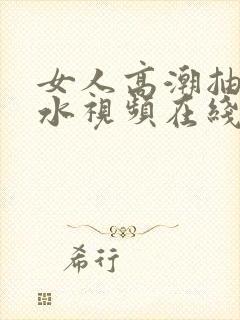 女人高潮抽
水視頻在綫
希行